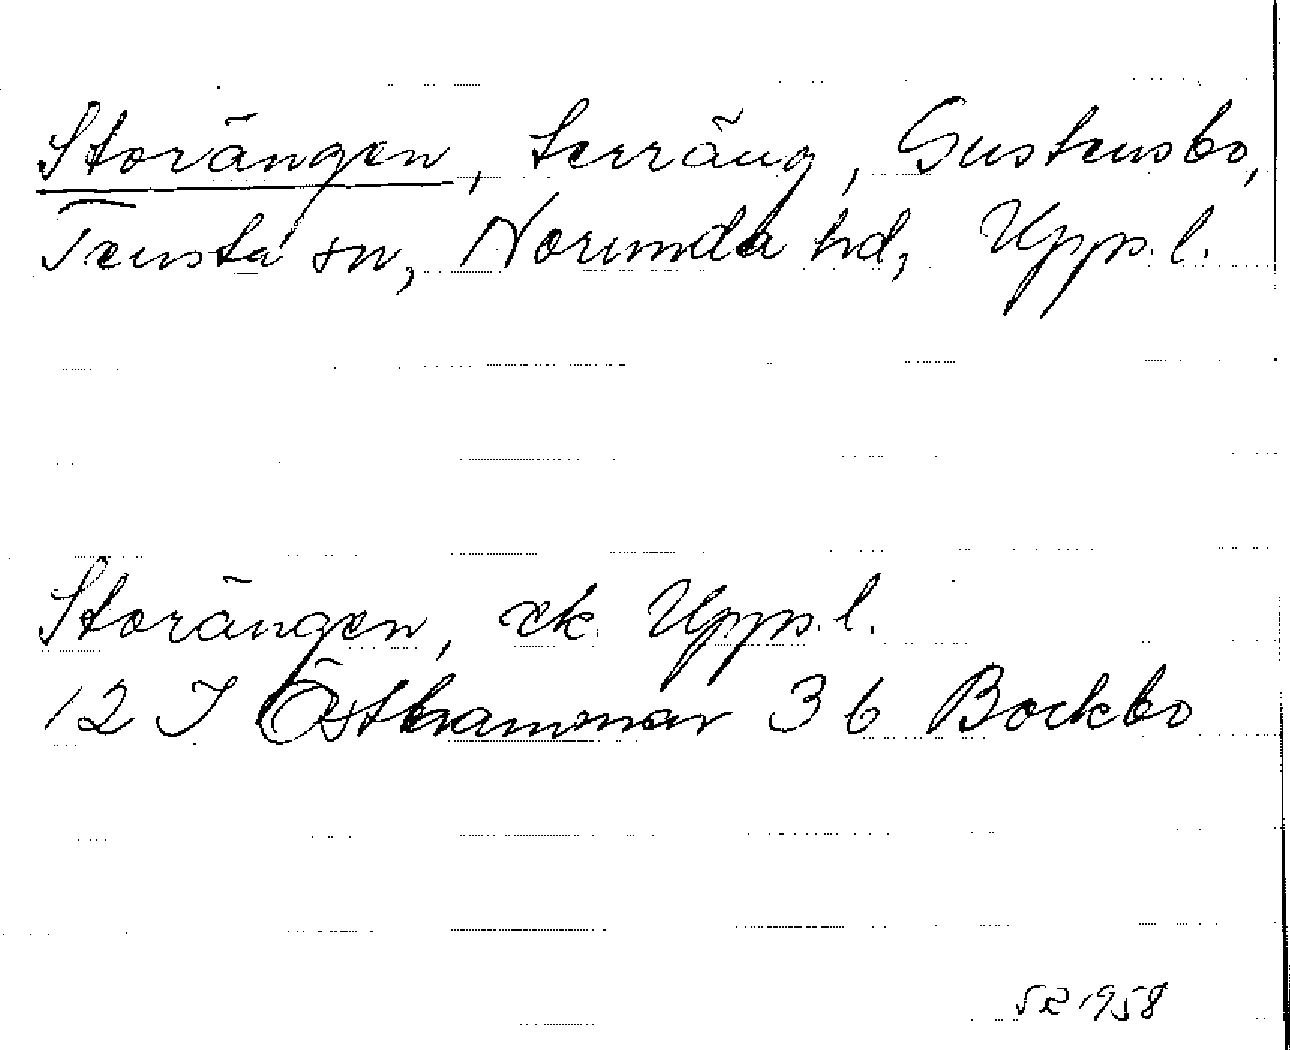 Storängen, terräng, Gustensbo,
Tensta sn, Norunda hd, Uppl.
Storängen, ek Uppl.
12 I Östhammar 3 b Bockbo
SR 1958